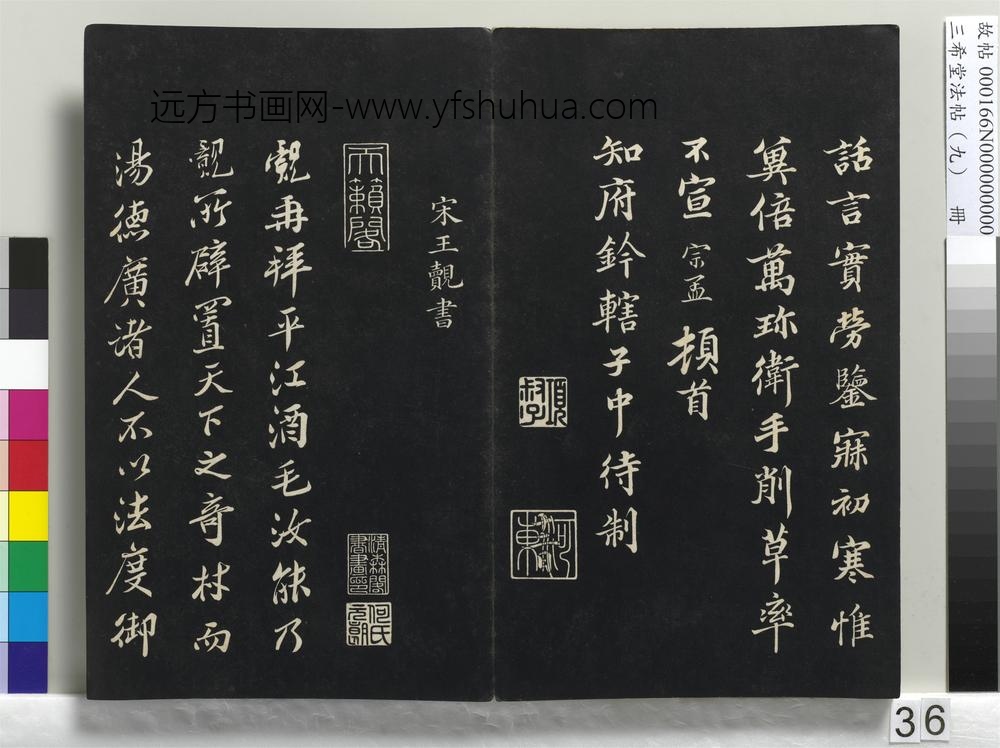 話言實勞鑒寐初寒惟
冀倍萬珎衛手削草率
不宣 宗孟 頓首
知府鈐轄子中待制
項叔子
宋王覿書
天籟閣
清森閣書畫印
何氏元朗
覿再拜平江酒毛汝能乃
覿所辟置天下之奇材而
湯德廣諸人不以法度御
远方书画网-www.yfshuhua.com
故帖 000166N000000000
三希堂法帖（九） 冊
36